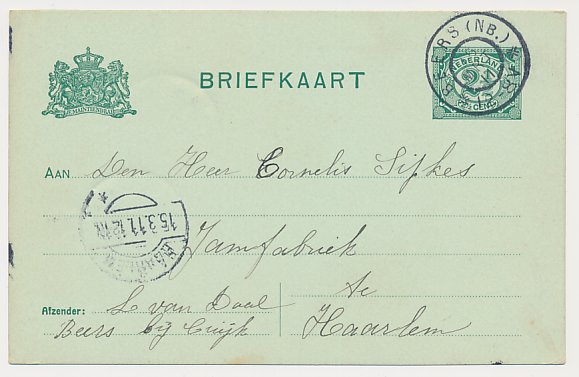 BEERS (NB.)
NEDERLAND
2½ CENT
JE MAINTIENDRAI
BRIEFKAART
AAN Den Heer Cornelis Sijkes
15.3.11. 12
HAARLEM
Jamfabriek
te
Haarlem
Afzender: L van Daal
Beers bij Cuijk